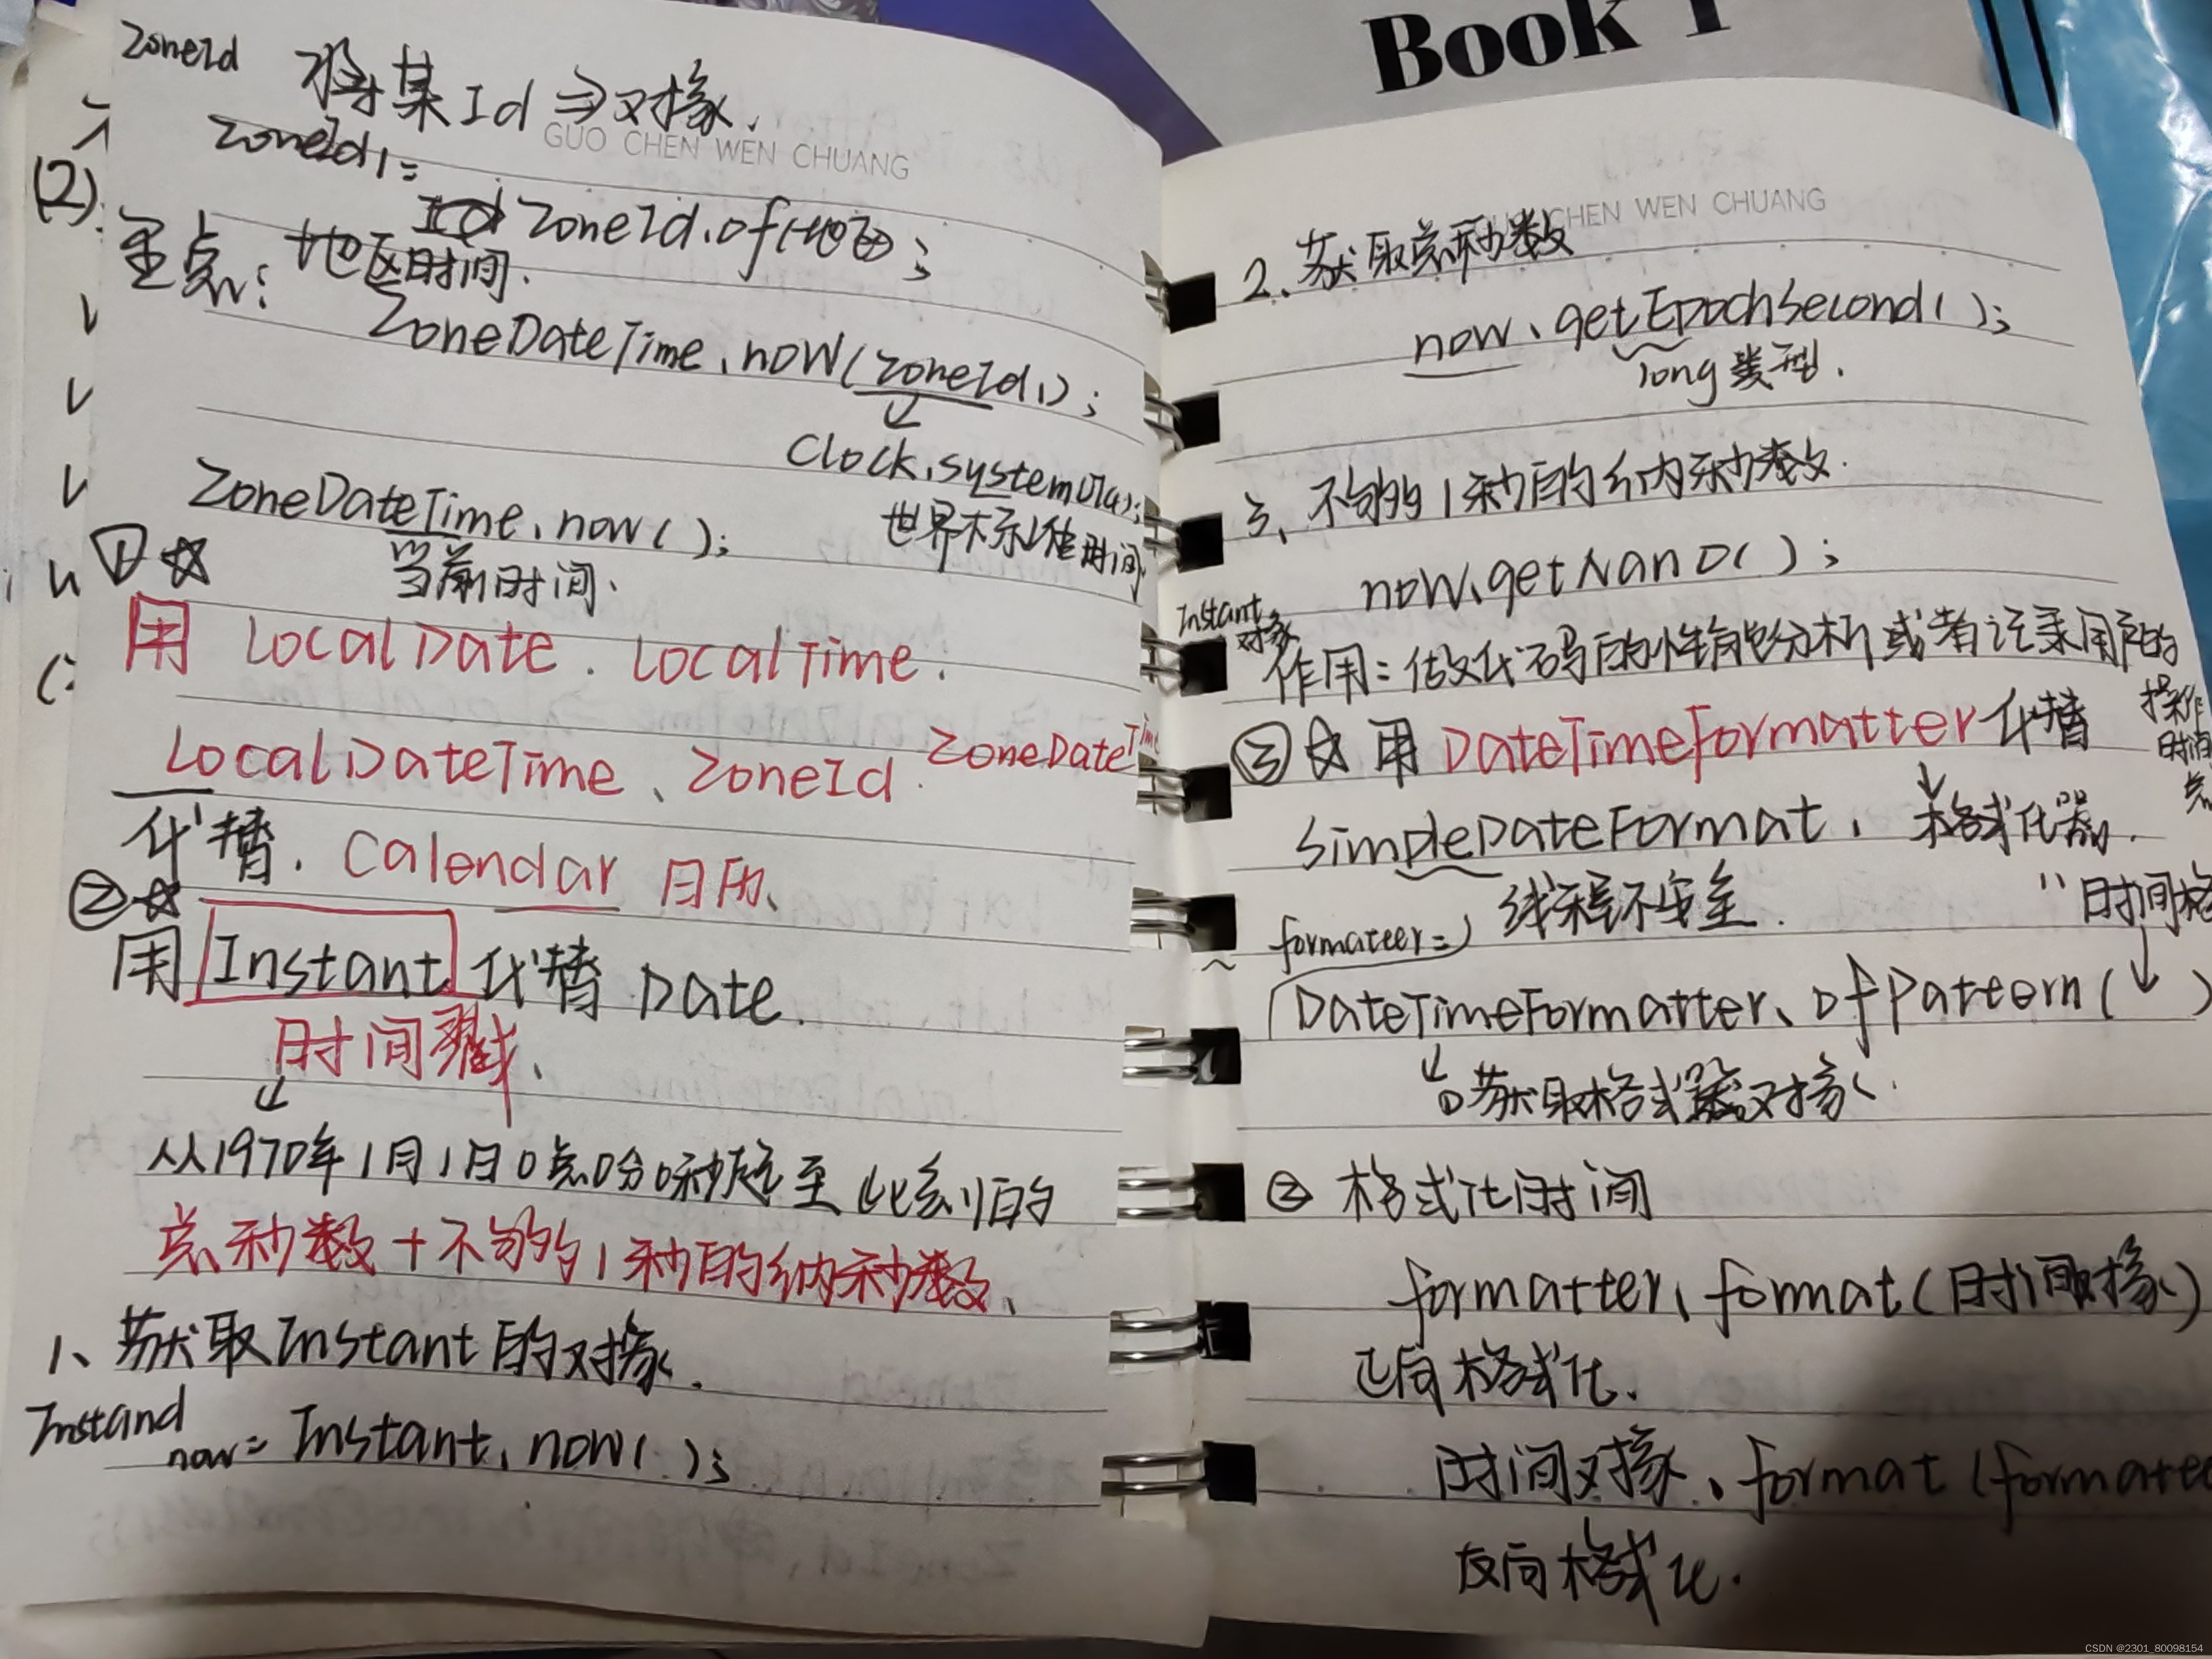 Book 1
ZoneId 将某Id⇒对象.
GUO CHEN WEN CHUANG
ZoneId1=
ZoneId.of(地区);
(2).
重点: 地区时间.
ZoneDateTime.now(ZoneId1);
Clock.systemUTC();
世界标准时间
ZoneDateTime.now();
当前时间.
①☆
用 LocalDate. LocalTime.
LocalDateTime、ZoneId. ZoneDateTime
代替. Calendar 日历、
②☆
用 Instant 代替 Date.
时间戳、
从1970年1月1日0点0分0秒起至此刻的
总秒数+不够1秒的纳秒数、
1、获取Instant的对象.
Instand
now= Instant.now();
CHEN WEN CHUANG
2.获取总秒数
now.getEpochSecond();
long类型.
3、不够1秒的纳秒数.
now.getNano();
Instant
对象
作用:做代码的性能分析或者记录用户的
操作
时间
点
③☆用DateTimeFormatter代替
SimpleDateFormat. 格式化器.
线程不安全.
"时间格
formateer=
DateTimeFormatter.ofPattern( )
①获取格式器对象.
② 格式化时间
formatter.format(时间对象)
正向格式化.
时间对象.format(formatee
反向格式化.
CSDN @2301_80098154